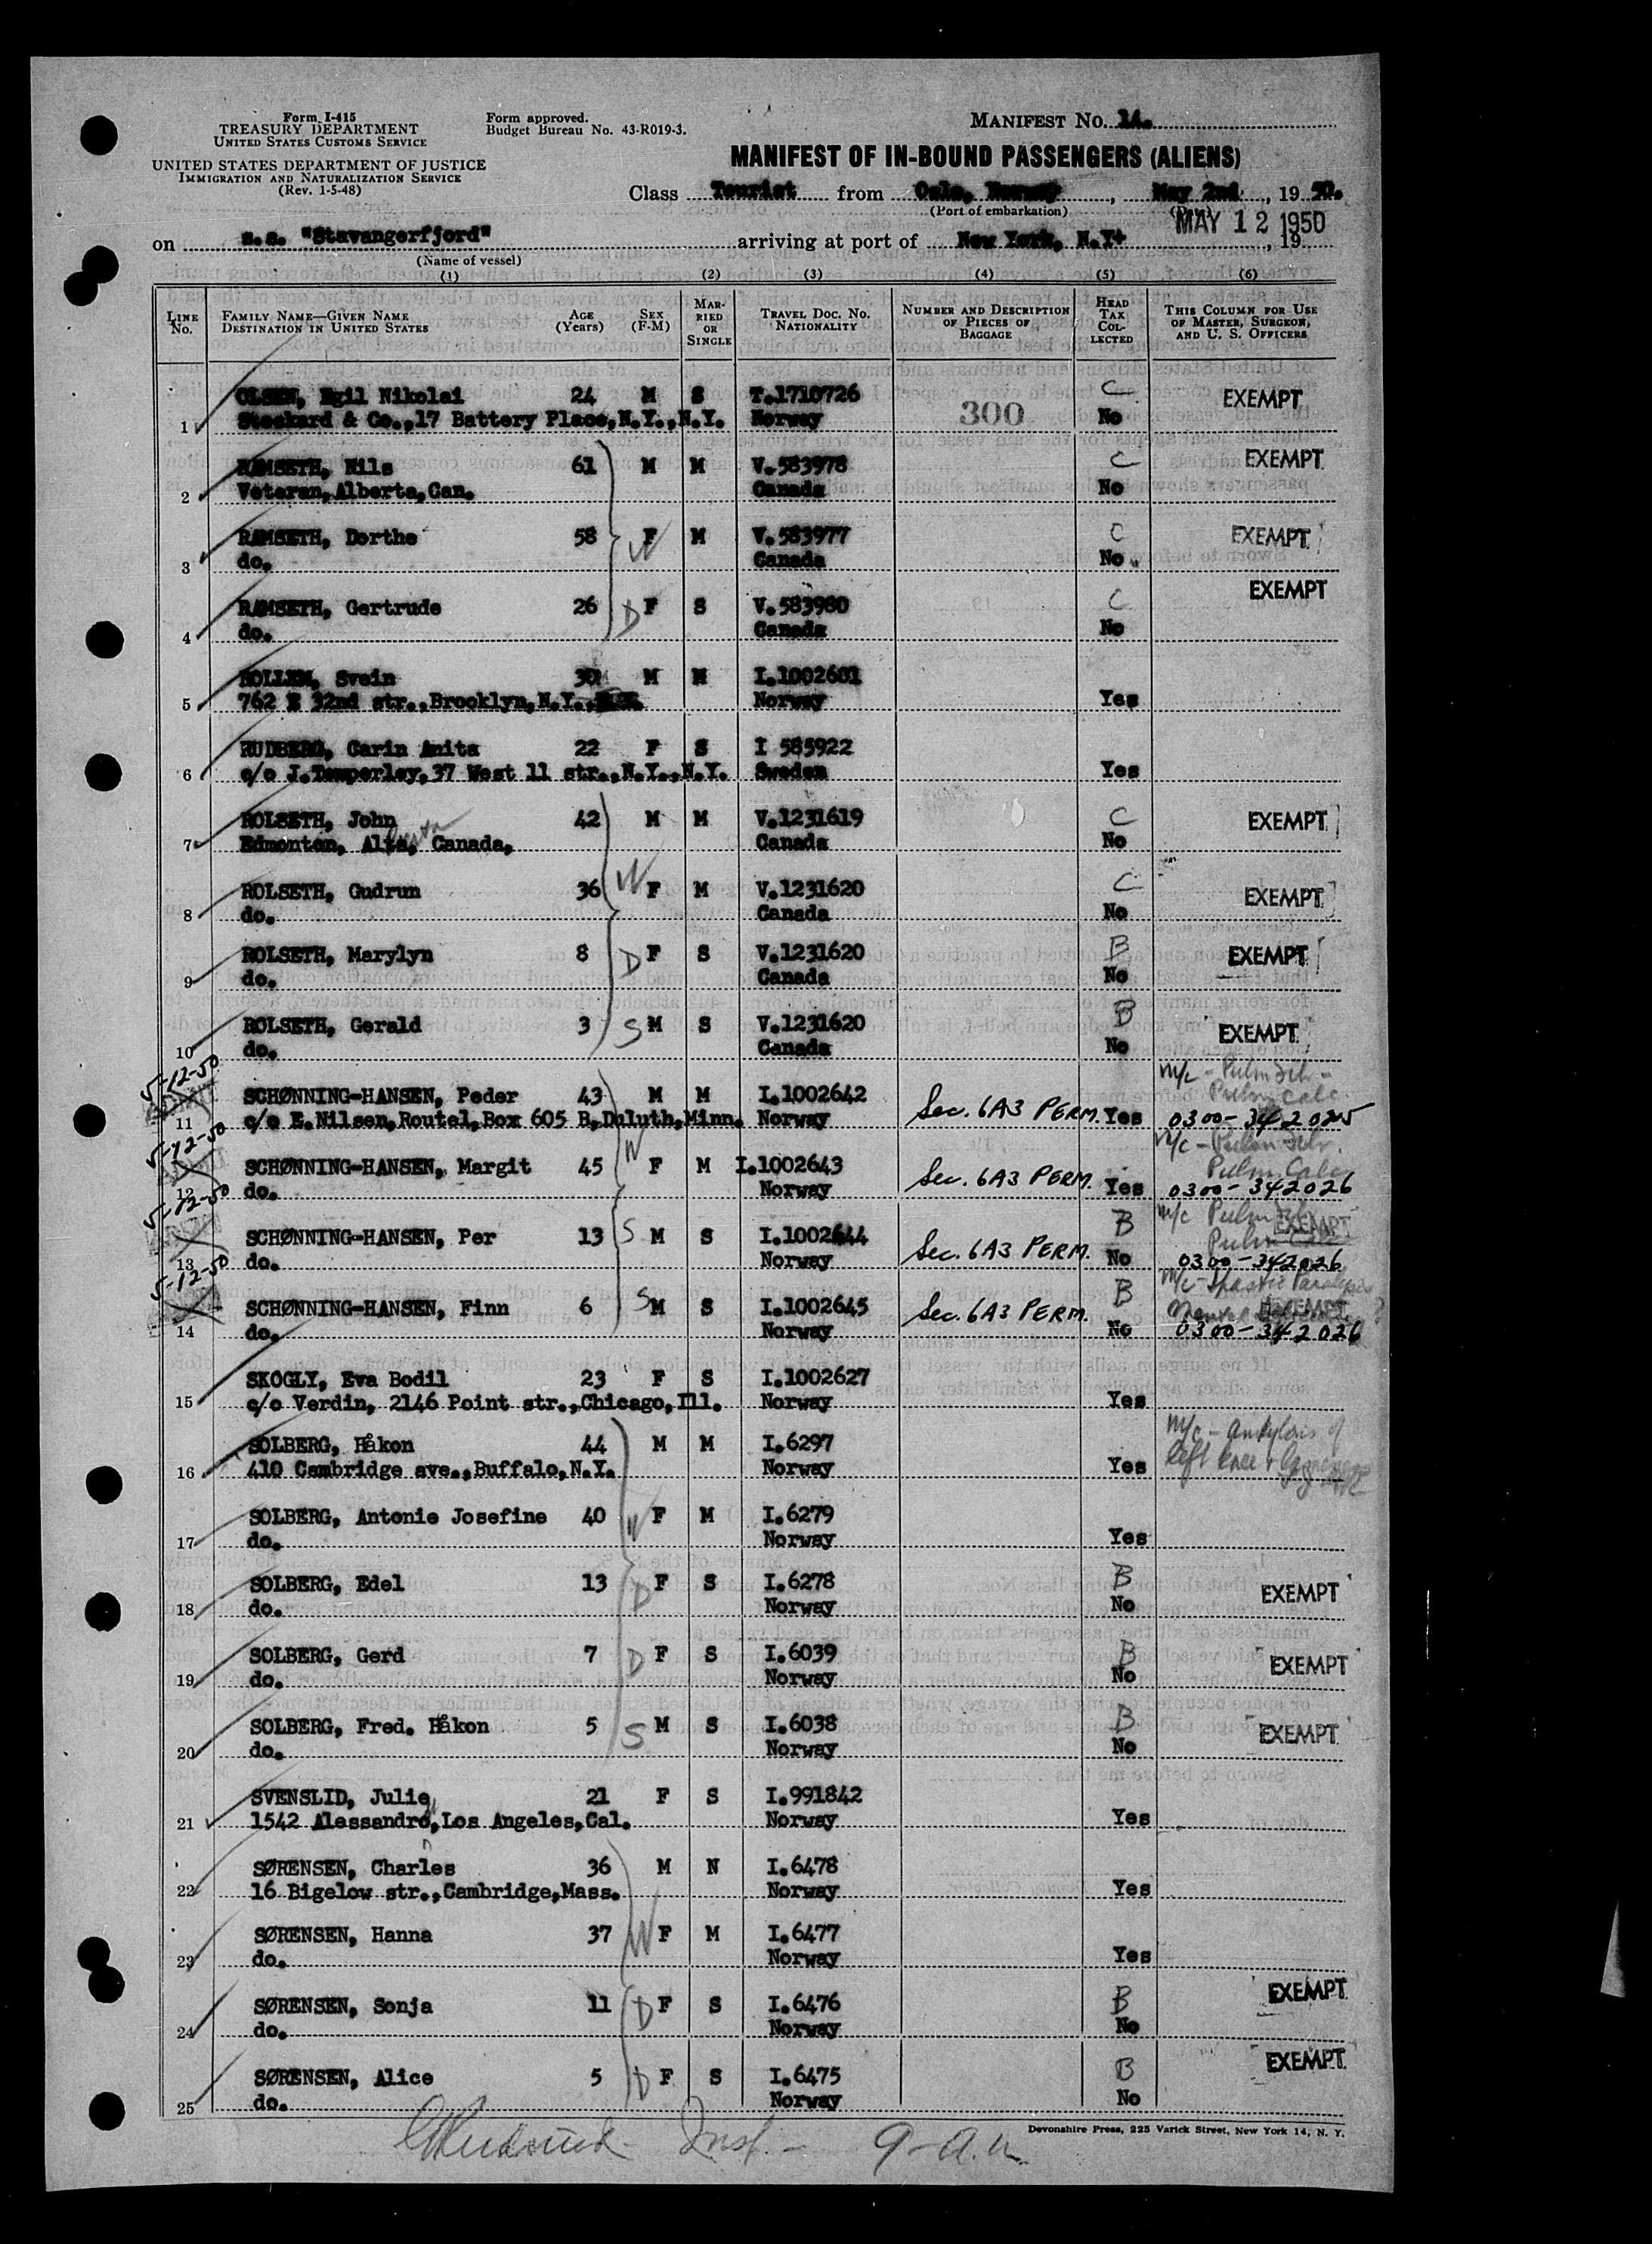 Form I-415
TREASURY DEPARTMENT
UNITED STATES CUSTOMS SERVICE
UNITED STATES DEPARTMENT OF JUSTICE
IMMIGRATION AND NATURALIZATION SERVICE
(Rev. 1-5-48)
Form approved.
Budget Bureau No. 43-R019-3.
MANIFEST NO. 14.
MANIFEST OF IN-BOUND PASSENGERS (ALIENS)
Class Tourist from Oslo, Norway, May 2nd, 19 50.
(Port of embarkation)
MAY 12 1950
on s.s. "Stavangerfjord" arriving at port of New York, N.Y. , 19
(Name of vessel)
(1) (2) (3) (4) (5) (6)
LINE NO. FAMILY NAME—GIVEN NAME DESTINATION IN UNITED STATES AGE (YEARS) SEX (F-M) MARRIED OR SINGLE TRAVEL DOC. NO. NATIONALITY NUMBER AND DESCRIPTION OF PIECES OF BAGGAGE HEAD TAX COLLECTED THIS COLUMN FOR USE OF MASTER, SURGEON, AND U. S. OFFICERS
OLSEN, Egil Nikolai 24 M S T.1710726 C EXEMPT
1 Stockard & Co.,17 Battery Place,N.Y.,N.Y. Norway 300 No
RAMSETH, Nils 61 M M V.583978 C EXEMPT
2 Veteran,Alberta,Can. Canada No
RAMSETH, Dorthe 58 W F M V.583977 C EXEMPT
3 do. Canada No
RAMSETH, Gertrude 26 D F S V.583980 C EXEMPT
4 do. Canada No
ROLLEM, Svein 30 M M I.1002601
5 762 E 32nd str.,Brooklyn,N.Y., Norway Yes
RUDBERG, Carin Anita 22 F S I 585922
6 c/o J.Temperley,37 West 11 str.,N.Y.,N.Y. Sweden Yes
ROLSETH, John 42 M M V.1231619 C EXEMPT
7 Edmonton, Alta, Canada, Canada No
ROLSETH, Gudrun 36 W F M V.1231620 C EXEMPT
8 do. Canada No
ROLSETH, Marylyn 8 D F S V.1231620 B EXEMPT
9 do. Canada No
ROLSETH, Gerald 3 S M S V.1231620 B EXEMPT
10 do. Canada No
5-12-50 SCHØNNING-HANSEN, Peder 43 M M I.1002642 m/c - Pulm Calc.
11 c/o E.Nilsen,Route1,Box 605 B,Duluth,Minn. Norway Sec. 6A3 PERM. Yes 0300-342025
5-12-50 SCHØNNING-HANSEN, Margit 45 W F M I.1002643 m/c - Pulm. Calc.
12 do. Norway Sec. 6A3 PERM. Yes 0300-342026
5-12-50 SCHØNNING-HANSEN, Per 13 S M S I.1002644 B m/c Pulm EXEMPT
13 do. Norway Sec. 6A3 PERM. No 0300-342026
5-12-50 SCHØNNING-HANSEN, Finn 6 S M S I.1002645 B m/c - Spastic Paralysis EXEMPT
14 do. Norway Sec. 6A3 PERM. No 0300-342026
SKOGLY, Eva Bodil 23 F S I.1002627
15 c/o Verdin, 2146 Point str.,Chicago,Ill. Norway Yes
SOLBERG, Håkon 44 M M I.6297 m/c - Ankylosis of
16 410 Cambridge ave.,Buffalo,N.Y. Norway Yes left knee
SOLBERG, Antonie Josefine 40 W F M I.6279
17 do. Norway Yes
SOLBERG, Edel 13 D F S I.6278 B EXEMPT
18 do. Norway No
SOLBERG, Gerd 7 D F S I.6039 B EXEMPT
19 do. Norway No
SOLBERG, Fred. Håkon 5 S M S I.6038 B EXEMPT
20 do. Norway No
SVENSLID, Julie 21 F S I.991842
21 1542 Alessandro,Los Angeles,Cal. Norway Yes
SØRENSEN, Charles 36 M N I.6478
22 16 Bigelow str.,Cambridge,Mass. Norway Yes
SØRENSEN, Hanna 37 W F M I.6477
23 do. Norway Yes
SØRENSEN, Sonja 11 D F S I.6476 B EXEMPT
24 do. Norway No
SØRENSEN, Alice 5 D F S I.6475 B EXEMPT
25 do. Norway No
Insp. - 9-a.m.
Devonshire Press, 225 Varick Street, New York 14, N. Y.